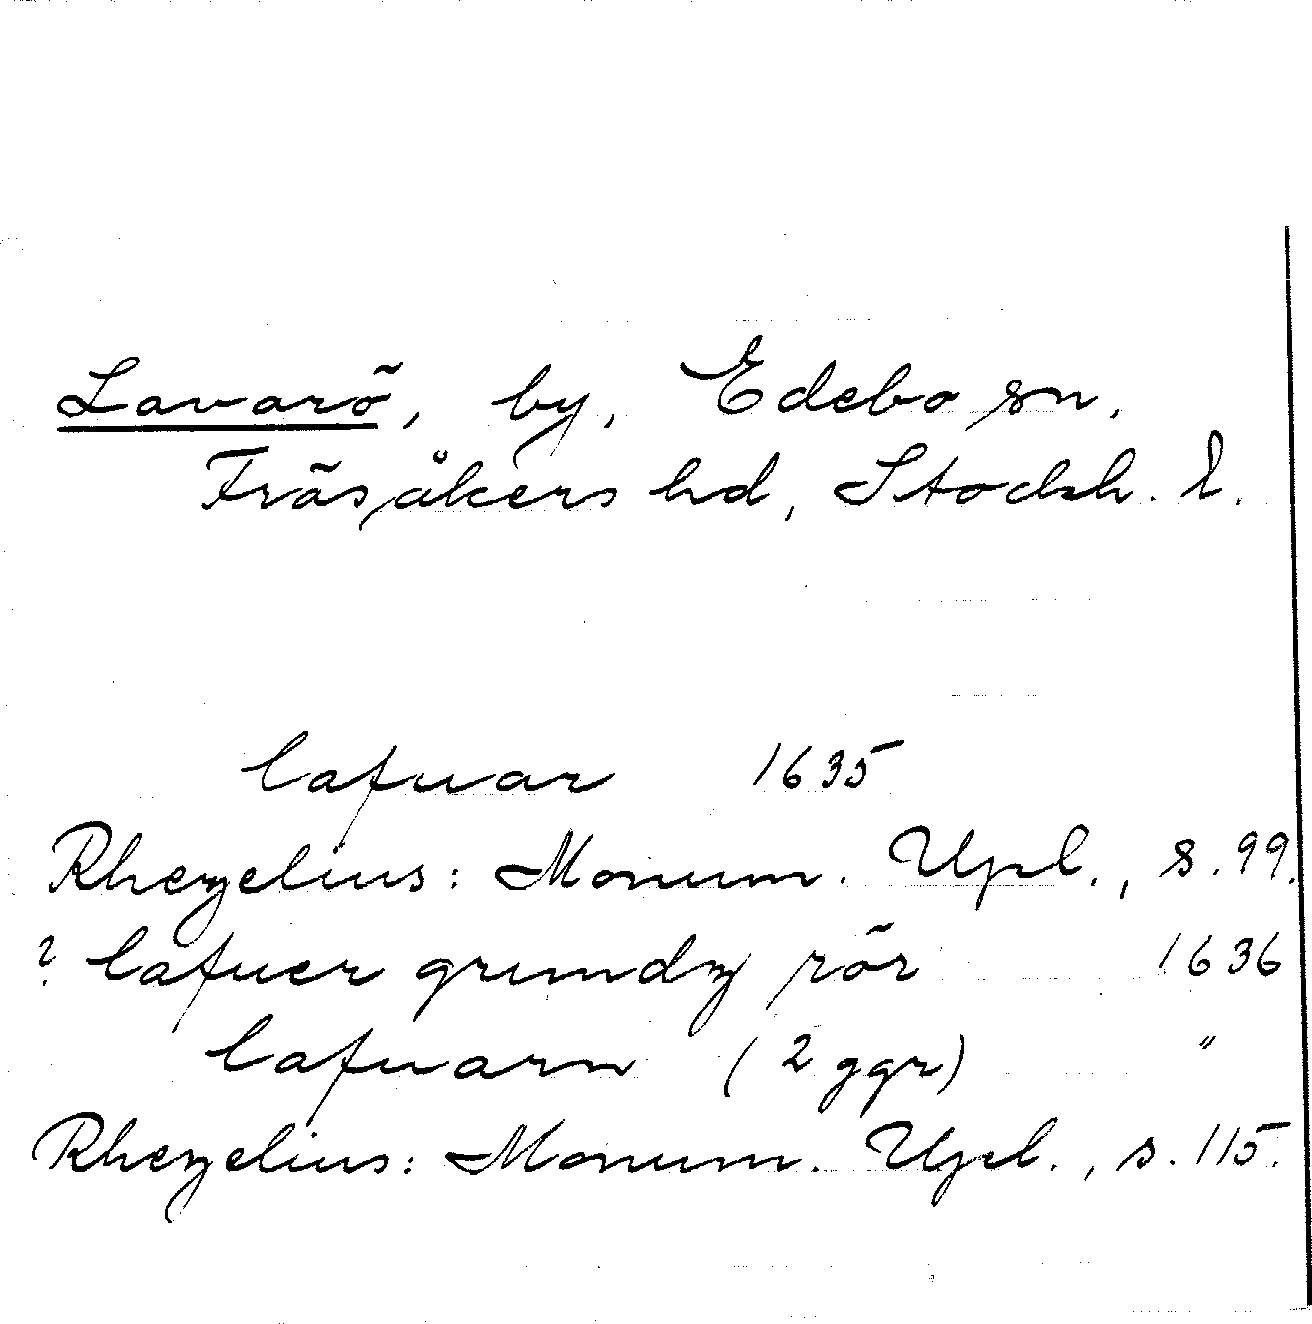 Lavarö, by, Edebo sn,
Fräsåkers hd, Stockh. l.
lafuar 1635
Rhezelius: Monum. Upl., s. 99.
? lafuer grundz rör 1636
lafuarn (2 ggr) "
Rhezelius: Monum. Upl., s. 115.